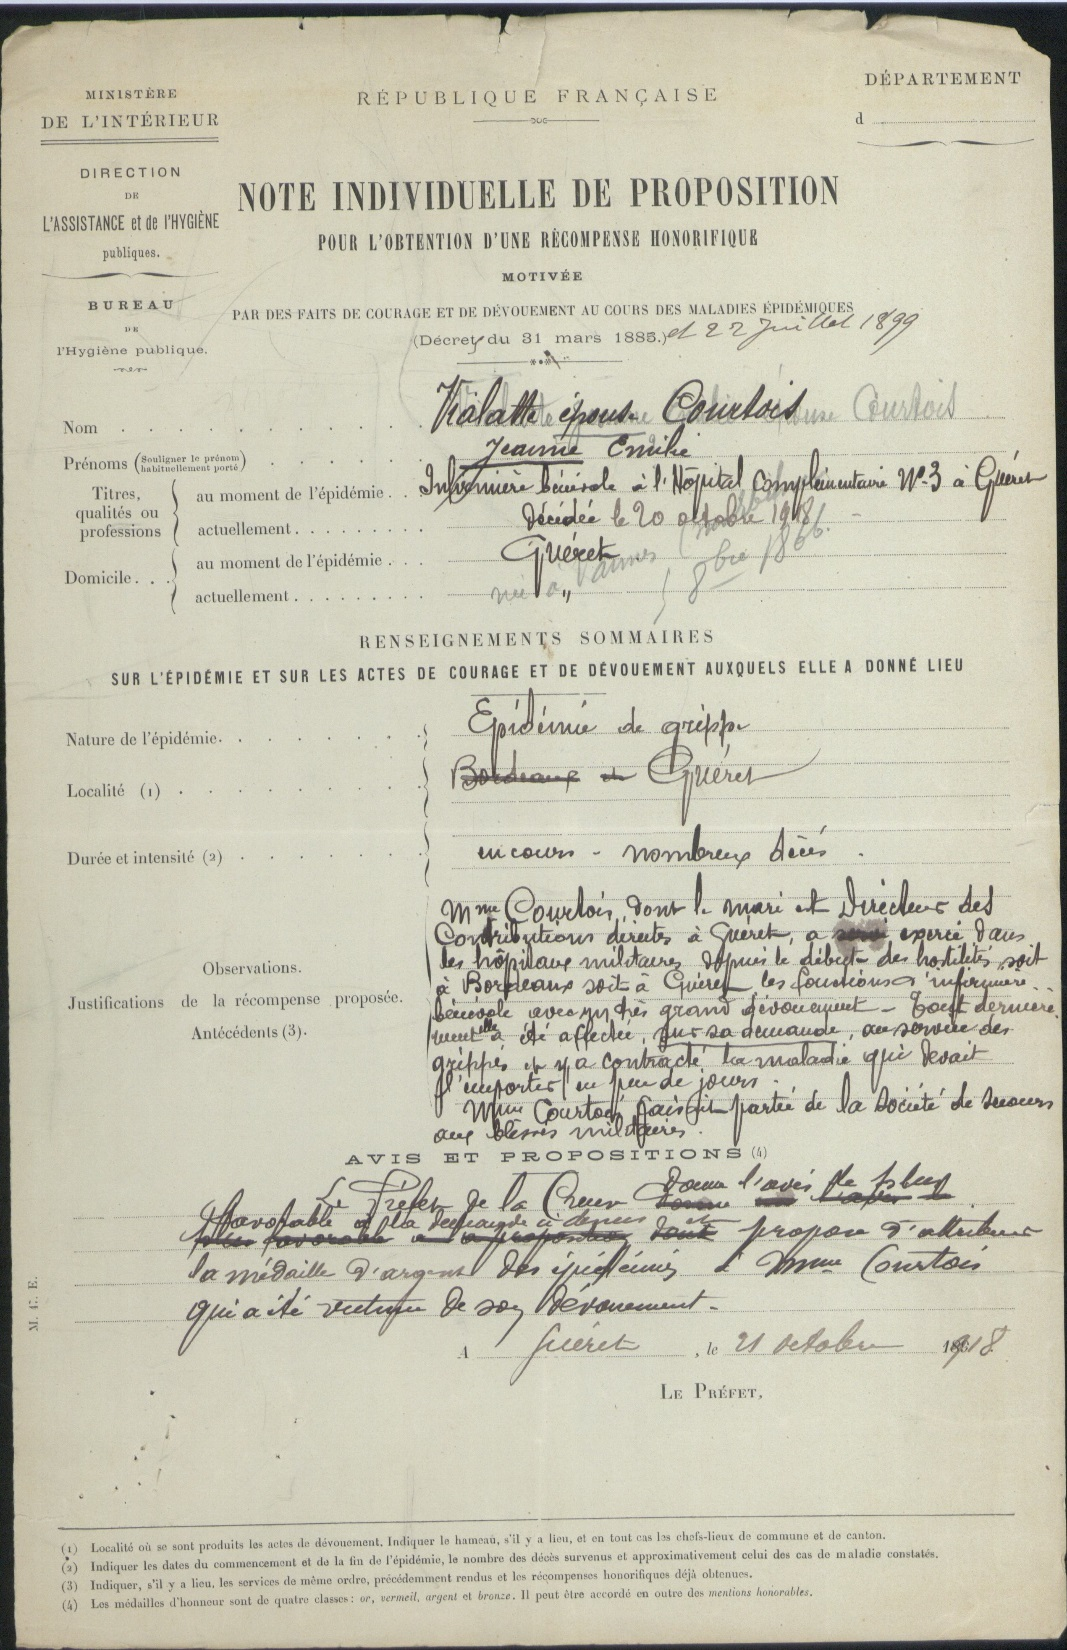 MINISTÈRE
DE L'INTÉRIEUR
DIRECTION
DE
L'ASSISTANCE et de l'HYGIÈNE
publiques.
BUREAU
DE
l'Hygiène publique.
RÉPUBLIQUE FRANÇAISE
DÉPARTEMENT
d
NOTE INDIVIDUELLE DE PROPOSITION
POUR L'OBTENTION D'UNE RÉCOMPENSE HONORIFIQUE
MOTIVÉE
PAR DES FAITS DE COURAGE ET DE DÉVOUEMENT AU COURS DES MALADIES ÉPIDÉMIQUES
(Décrets du 31 mars 1885.) et 22 Juillet 1899
Nom Vialatte épouse Courtois épouse Courtois
Prénoms (Souligner le prénom habituellement porté) Jeanne Emilie
Titres, qualités ou professions
au moment de l'épidémie Infirmière bénévole à l'Hôpital Complémentaire N° 3 à Guéret
actuellement décédée le 20 octobre 1918
Domicile
au moment de l'épidémie Guéret
actuellement "
née à Vannes 8bre 1866
RENSEIGNEMENTS SOMMAIRES
SUR L'ÉPIDÉMIE ET SUR LES ACTES DE COURAGE ET DE DÉVOUEMENT AUXQUELS ELLE A DONNÉ LIEU
Nature de l'épidémie. Epidémie de grippe
Localité (1) Bordeaux et Guéret
Durée et intensité (2) en cours - nombreux décès.
Observations.
Justifications de la récompense proposée.
Antécédents (3).
Mme Courtois, dont le mari est Directeur des
Contributions directes à Guéret, a exercé dans
les hôpitaux militaires depuis le début des hostilités, soit
à Bordeaux soit à Guéret les fonctions d'infirmière
bénévole avec un très grand dévouement - Tout dernière-
ment elle a été affectée, sur sa demande, au service des
grippés et y a contracté la maladie qui devait
l'emporter en peu de jours.
Mme Courtois faisait partie de la société de secours
aux blessés militaires.
AVIS ET PROPOSITIONS (4)
Le Préfet de la Creuse donne l'avis le plus
favorable à la demande ci-dessus et propose d'attribuer
la médaille d'argent des épidémies à Mme Courtois
qui a été victime de son dévouement.
A Guéret, le 21 octobre 1918
LE PRÉFET,
M. C. E.
(1) Localité où se sont produits les actes de dévouement. Indiquer le hameau, s'il y a lieu, et en tout cas les chefs-lieux de commune et de canton.
(2) Indiquer les dates du commencement et de la fin de l'épidémie, le nombre des décès survenus et approximativement celui des cas de maladie constatés.
(3) Indiquer, s'il y a lieu, les services de même ordre, précédemment rendus et les récompenses honorifiques déjà obtenues.
(4) Les médailles d'honneur sont de quatre classes : or, vermeil, argent et bronze. Il peut être accordé en outre des mentions honorables.